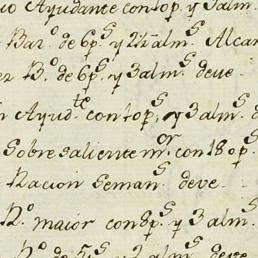 Ayudante con 10 p.s y 3 alm.s
Bar.o de 6 p.s y 2½ alm.s Alcan
B.o de 6 p.s y 3 alm.s deve
Ayud.te con 10 p.s y 3 alm.s d
Sobresaliente m.or con 18 p.s
Racion Seman.s deve
B.o maior con 8 p.s y 3 alm.s
B.o de 5 p.s y 2 alm.s deve